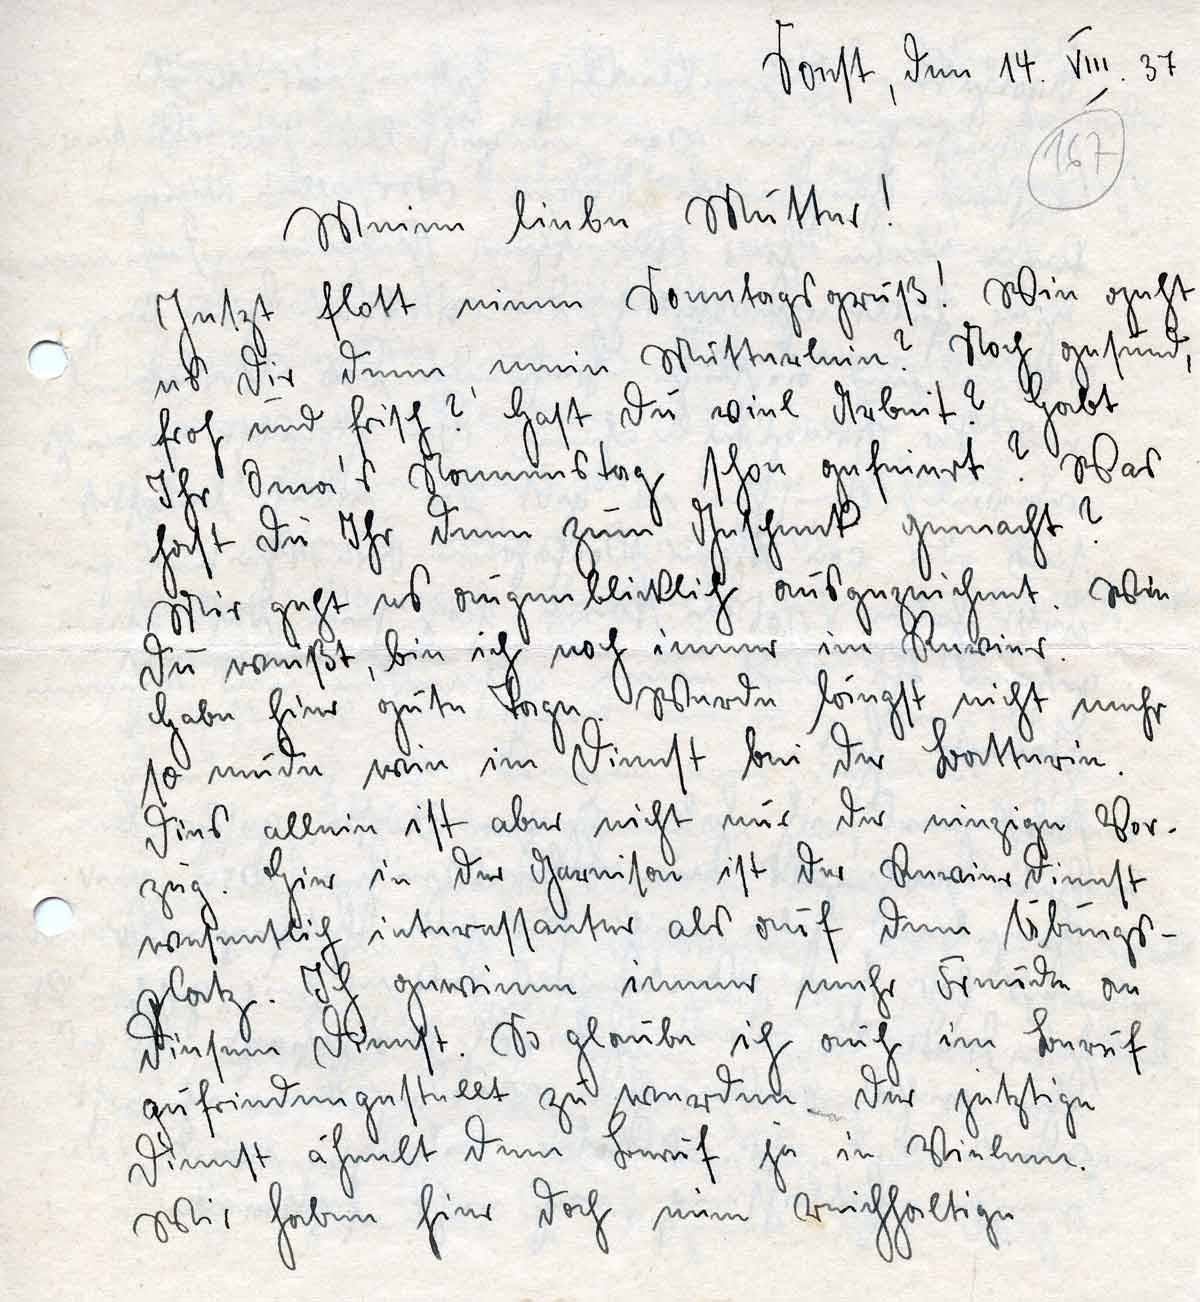 Soest, den 14. VIII. 37
167
Meine liebe Mutter!
Jetzt flott einen Sonntagsgruß! Wie geht
es Dir denn, mein Mütterlein? Noch gesund,
froh und frisch? Hast Du viel Arbeit? Habt
Ihr Oma's Namenstag schon gefeiert? Was
hast Du Ihr denn zum Geschenk gemacht?
Mir geht es augenblicklich ausgezeichnet. Wie
Du weißt, bin ich noch immer im Revier.
Habe hier gute Tage. Werde längst nicht mehr
so müde wie im Dienst bei der Batterie.
Dies allein ist aber nicht nur der einzige Vor-
zug. Hier in der Garnison ist der Revierdienst
wesentlich interessanter als auf dem Übungs-
platz. Ich gewinne immer mehr Freude an
diesem Dienst. So glaube ich auch im Beruf
zufriedengestellt zu werden. Der jetzige
Dienst ähnelt dem Beruf ja in Vielem.
Wir haben hier doch eine reichhaltige